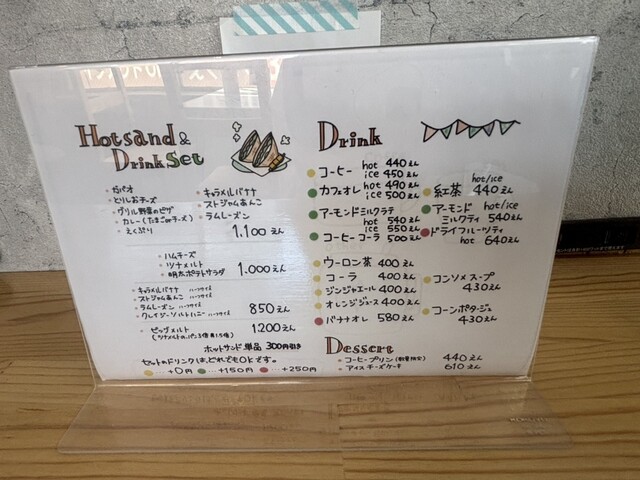 Hotsand &
Drink Set
ガパオ
とりしおチーズ
グリル野菜のピザ
カレー(たまごorチーズ)
えくぷり
キャラメルバナナ
ストジャムあんこ
ラムレーズン
1,100えん
ハムチーズ
ツナメルト
明太ポテトサラダ
1.000えん
キャラメルバナナ ハーフサイズ
ストジャムあんこ ハーフサイズ
ラムレーズン ハーフサイズ
クレイジーソルトハニー ハーフサイズ
850えん
ビッグメルト
(ツナメルトのパン3倍 具1.5倍)
1200えん
ホットサンド単品 300円引き
セットのドリンクは、どれでもOKです。
…+0円 …+150円 …+250円
Drink
コーヒー hot 440えん
ice 450えん
カフェオレ hot 490えん
ice 500えん
アーモンドミルクラテ
hot 540えん
ice 550えん
コーヒーコーラ 500えん
ウーロン茶 400えん
コーラ 400えん
ジンジャエール 400えん
オレンジジュース 400えん
バナナオレ 580えん
hot/ice
紅茶 440えん
アーモンド hot/ice
ミルクティ 540えん
ドライフルーツティ
hot 640えん
コンソメスープ
430えん
コーンポタージュ
430えん
Dessert
コーヒープリン(数量限定) 440えん
アイスチーズケーキ 610えん